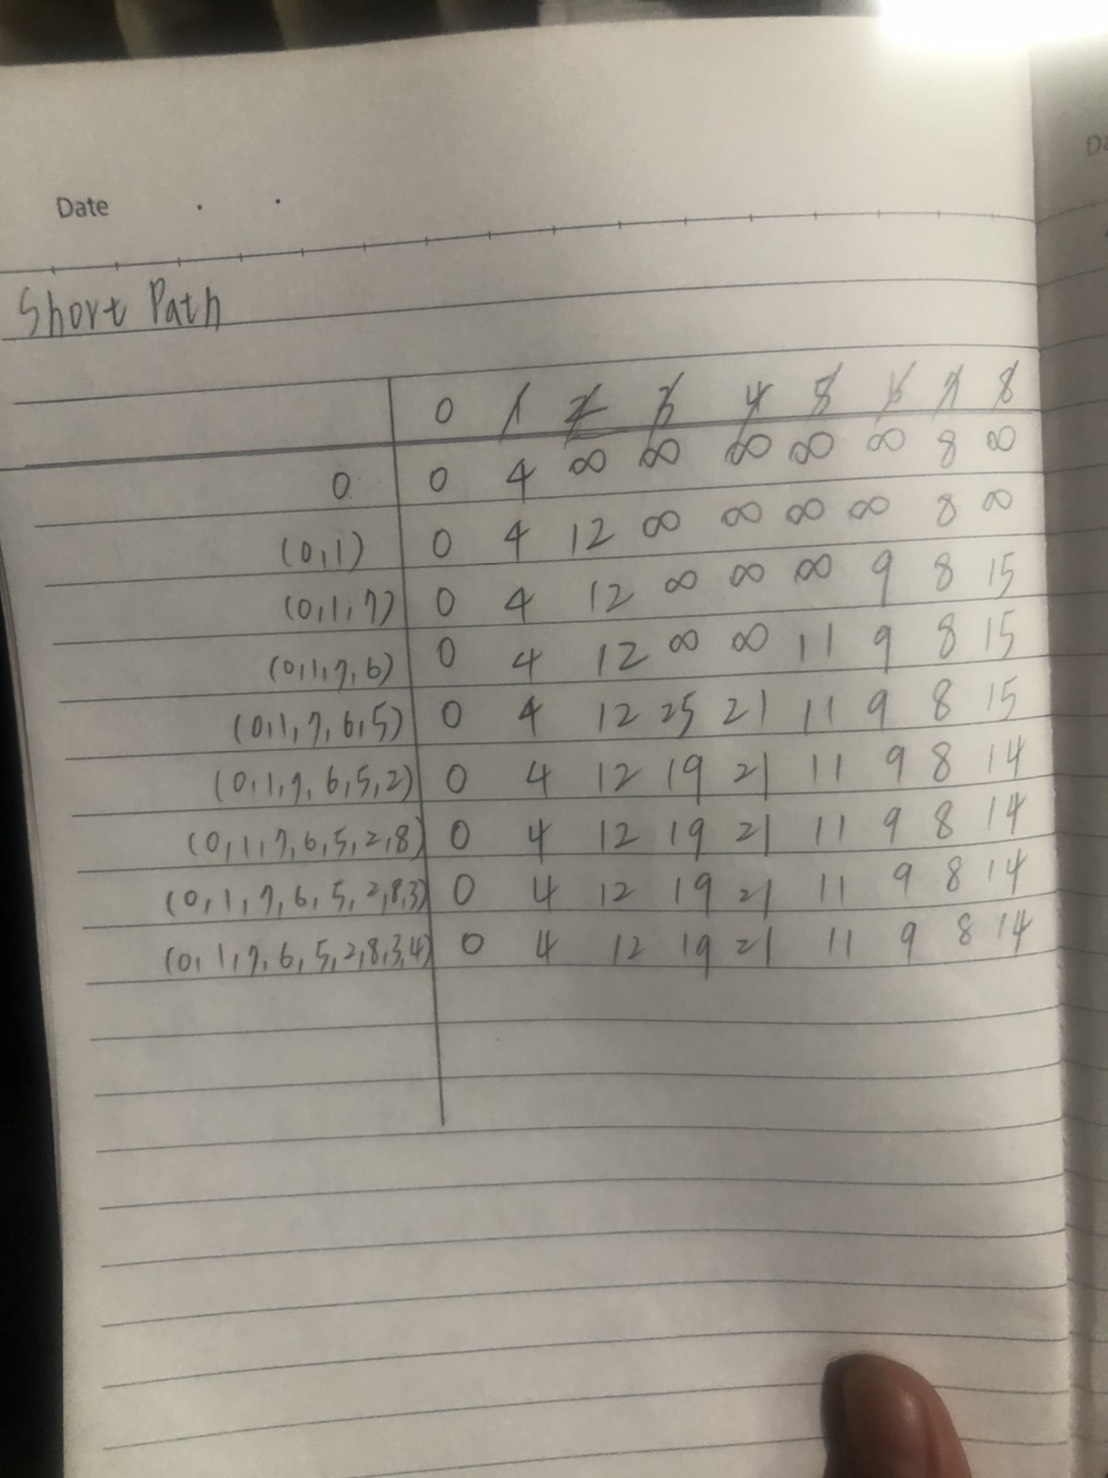 Date . .
Short Path
0 1 2 3 4 5 6 7 8
0 0 4 ∞ ∞ ∞ ∞ ∞ 8 ∞
(0,1) 0 4 12 ∞ ∞ ∞ ∞ 8 ∞
(0,1,7) 0 4 12 ∞ ∞ ∞ 9 8 15
(0,1,7,6) 0 4 12 ∞ ∞ 11 9 8 15
(0,1,7,6,5) 0 4 12 25 21 11 9 8 15
(0,1,7,6,5,2) 0 4 12 19 21 11 9 8 14
(0,1,7,6,5,2,8) 0 4 12 19 21 11 9 8 14
(0,1,7,6,5,2,8,3) 0 4 12 19 21 11 9 8 14
(0,1,7,6,5,2,8,3,4) 0 4 12 19 21 11 9 8 14